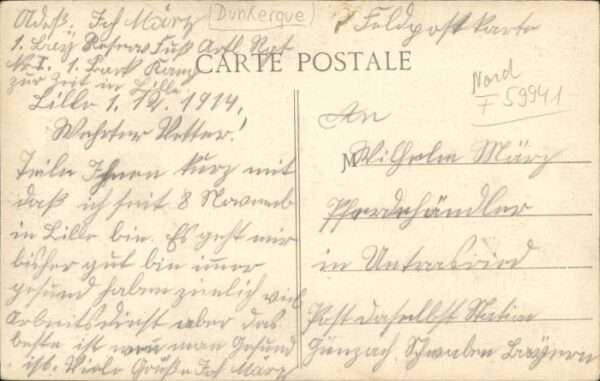 Adeß. Joh März
(Dunkerque)
Feldpostkarte
1. Bay Reserv Fuß Artl Rgt
No I. 1. Batt
zur Zeit in Lille
CARTE POSTALE
Nord
F 59941
Lille 1. 12. 1914.
Wehrter Vetter!
Teile Ihnen kurz mit
daß ich seit 8 Novemb
in Lille bin. Es geht mir
bisher gut bin imer
gesund haben zimlich viel
Arbeitsdinst aber das
beste ist wen man Gesund
ist. Viele Grüße Joh März
An
M Wilhelm März
Pferdehändler
in Untrasried
Post daselbst Station
Günzach Schwaben Bayern